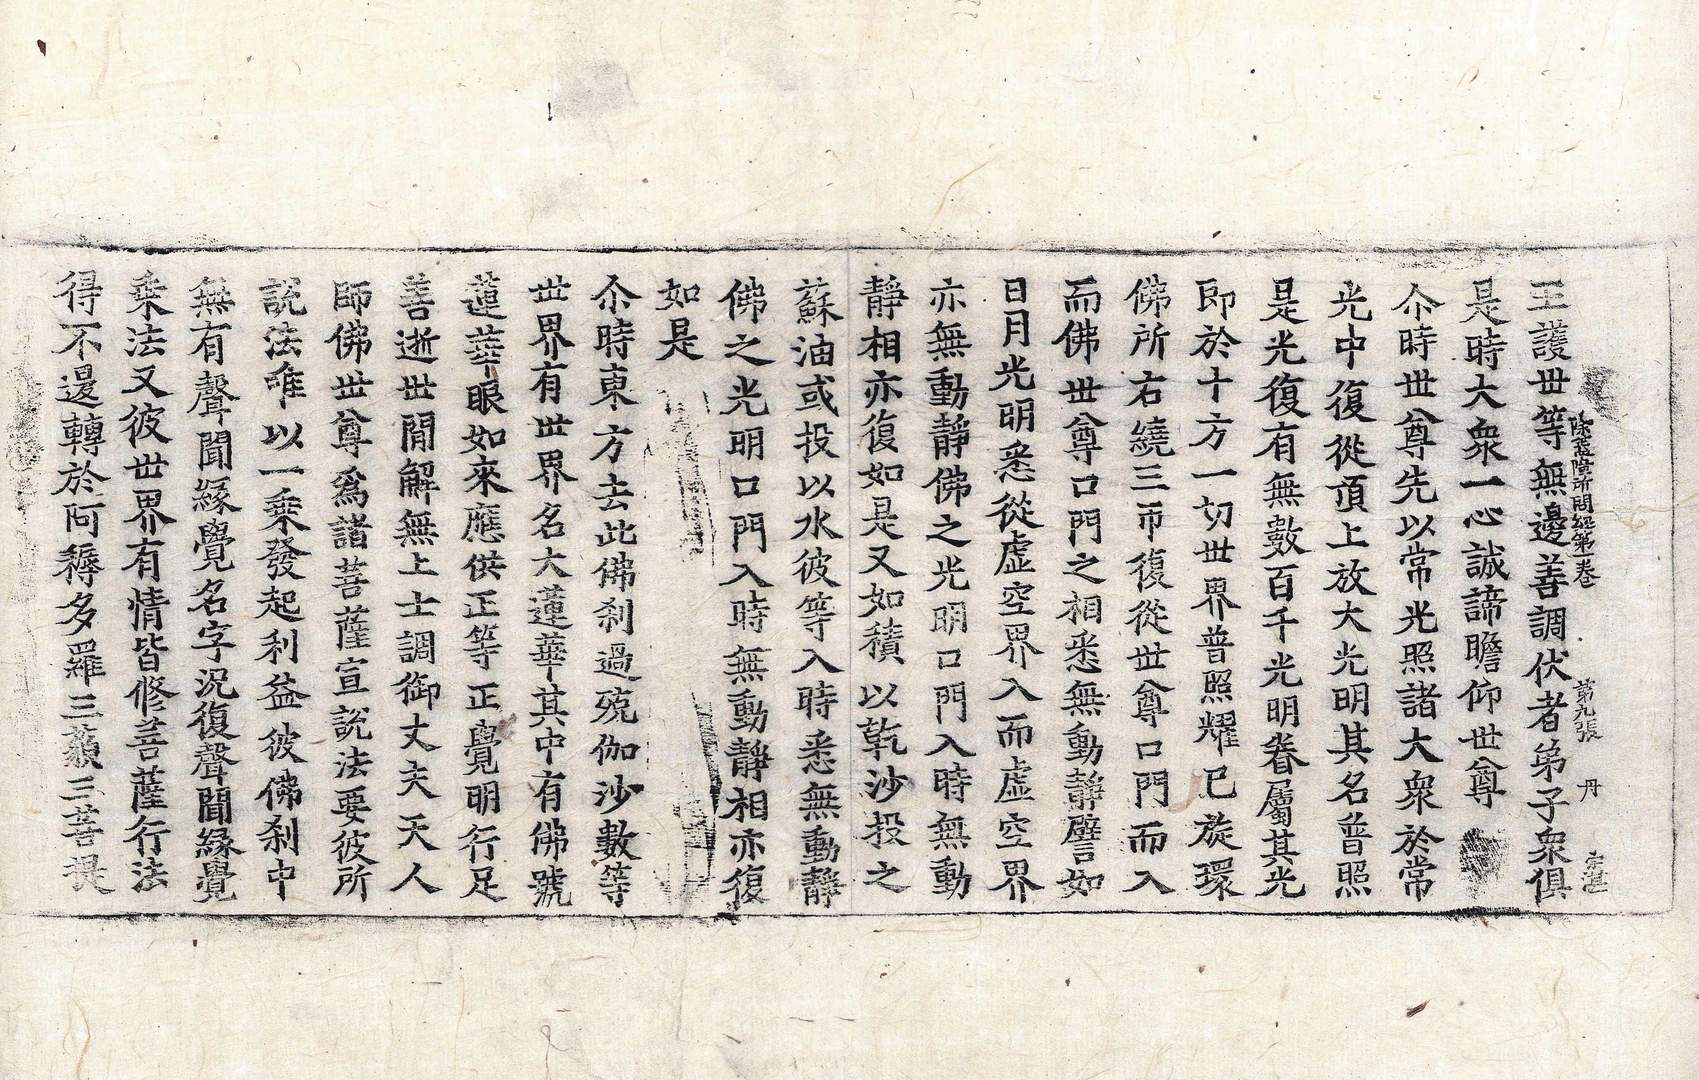 王護世等無邊善調伏者弟子衆俱
除蓋障所問經第一卷 第九張 丹
是時大衆一心諦瞻仰世尊
尒時世尊先以常光照諸大衆於常
光中復從頂上放大光明其名普照
是光復有無數百千光明眷屬其光
即於十方一切世界普照耀已旋環
佛所右繞三帀復從世尊口門而入
而佛世尊口門之相悉無動靜譬如
日月光明悉從虛空界入而虛空界
亦無動靜佛之光明口門入時無動
靜相亦復如是又如積以乾沙投之
蘇油或投以水彼等入時悉無動靜
佛之光明口門入時無動靜相亦復
如是
尒時東方去此佛刹過殑伽沙數等
世界有世界名大蓮華其中有佛號
蓮華眼如來應供正等正覺明行足
善逝世間解無上士調御丈夫天人
師佛世尊爲諸菩薩宣說法要彼所
說法唯以一乗發起利益彼佛刹中
無有聲聞緣覺名字況復聲聞緣覺
乗法又彼世界有情皆修菩薩行法
得不退轉於阿耨多羅三藐三菩提